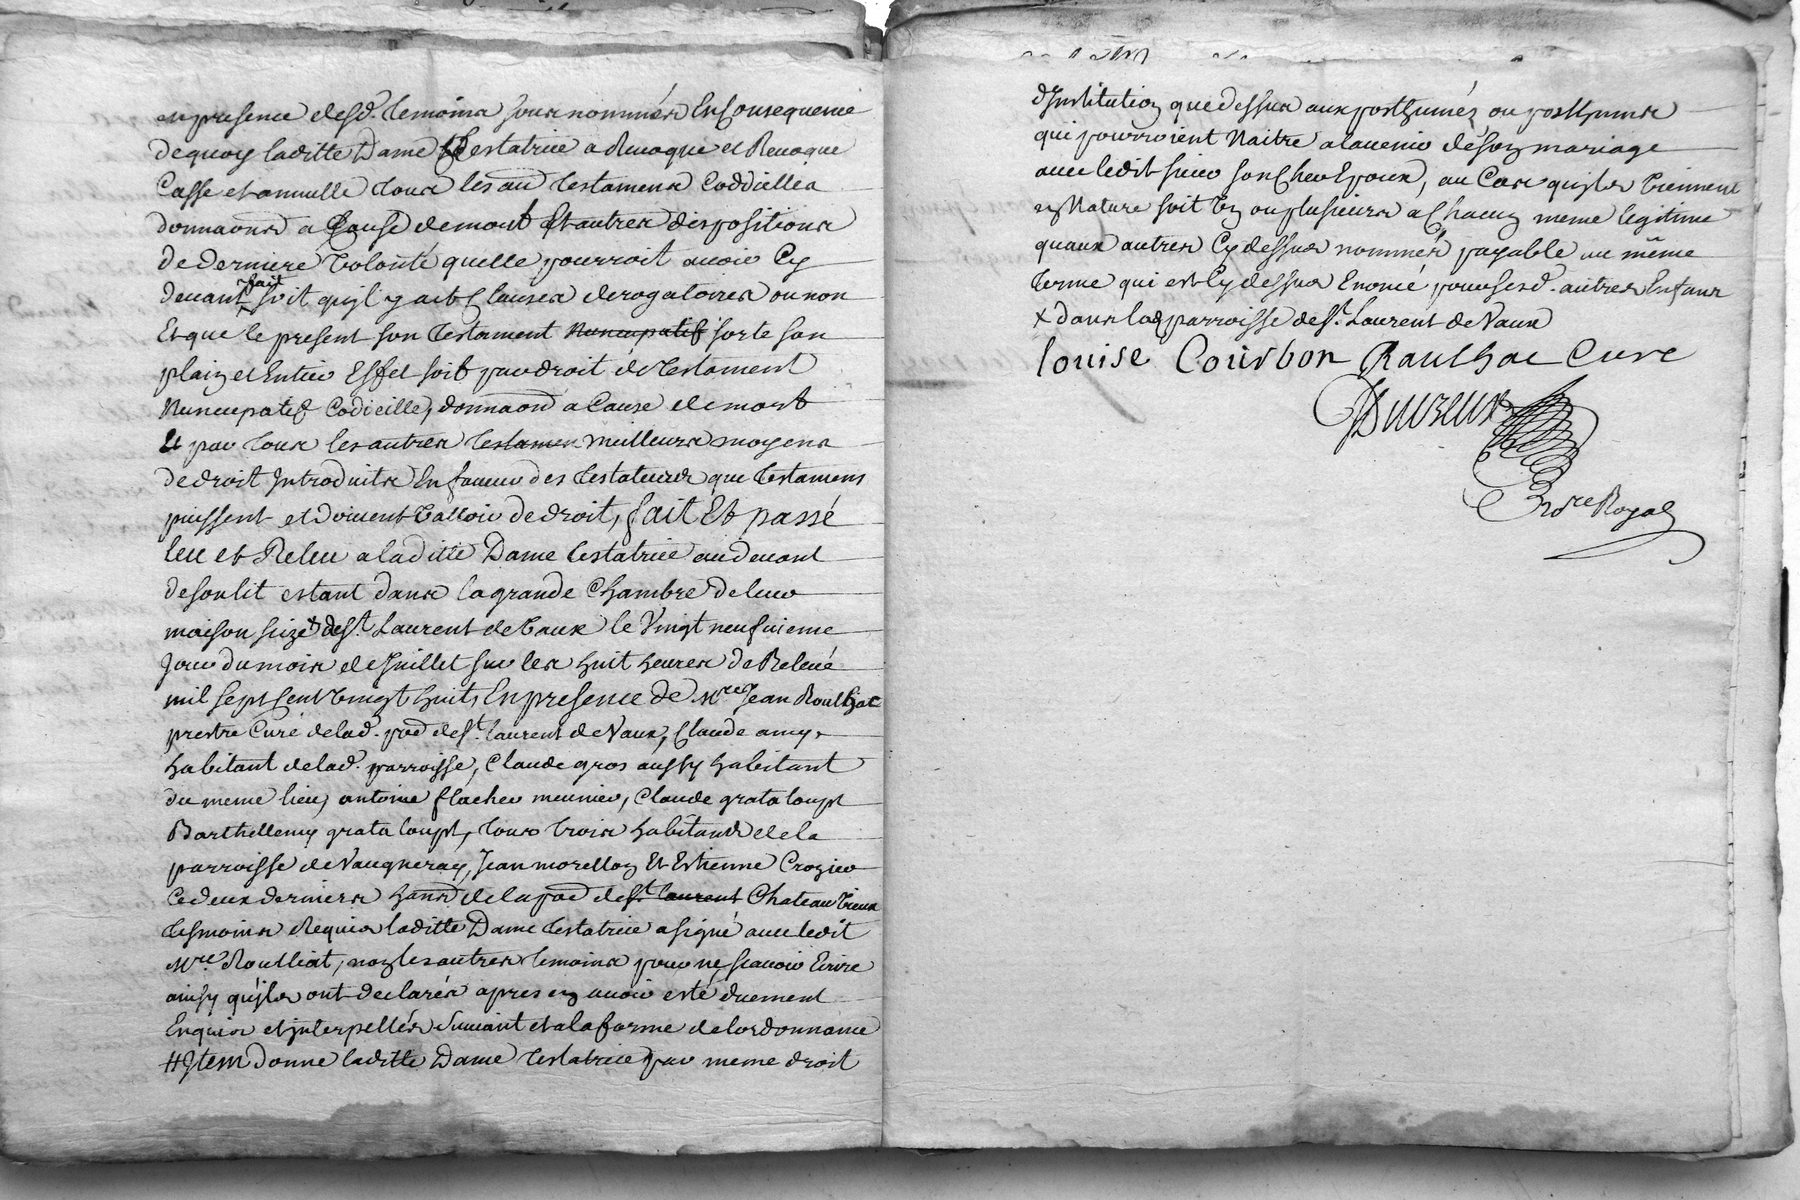 en presence desd. temoins sous nommés En Consequence
de quoy laditte Dame Testatrice a Revoqué et Revoque
Casse et annulle tous les aud testamens Coddicilles
donnaons a Cause de mort Et autres dispositions
de derniere volonté quelle pourroit avoir Cy
devant fait soit qujl y ait Clauses derogatoires ou non
Et que le present son testament nuncupatif sorte son
plain et Entier Effet soit par droit de testament
Nuncupatif Codicille, donnaon a Cause de mort
Et par tous les autres testamen meilleurs moyens
de droit Introduits En faveur des testateurs que testamens
puissent et doivent valloir de droit, fait Et passé
leu et Releu a laditte Dame testatrice audevant
de son lit estant dans la grande Chambre de leur
maison size + de St. Laurent de Vaux le Vingt neufuieme
Jour du mois de Juillet sur les huit heures de Relevé
mil sept Cent vingt huit, En presence de Mre Jean Roulhac
prestre Curé de lad. pad de St. Laurent de Vaux, Claude amy
habitant de lad. parroisse, Claude gros aussy habitant
du meme lieu, antoine flacher meunier, Claude grataloupt
Barthellemy grataloupt, tous trois habitans de la
parroisse de Vaugneray, Jean morellon Et Estienne Crozier
Ce deux derniers hans de la pad de St. laurent Chateau vieux
tesmoins Requis laditte Dame testatrice a signé avec ledit
Mre. Roulliat, non les autres temoins pour ne scavoir Ecrire
ainsy qujls ont declarés apres en avoir esté duement
Enquis et jnterpellés suivant et a la forme de lordonnance
# Jtem donne laditte Dame testatrice par meme droit
dJnstitution que dessus aux posthumés ou posthumes
qui pourroient Naitre a lavenir de son mariage
avec ledit sieur son Cher Epoux, au Cas qujls viennent
en Nature soit un ou plusieurs a Chacun meme legitime
quaux autres Cy dessus nommés payable au même
terme qui est Cy dessus Enoncé pour sesd. autres Enfans
+ dans lad parroisse de St. Laurent de Vaux
louise Courbon Raulhac Cure
Duvreux
Nore Royal